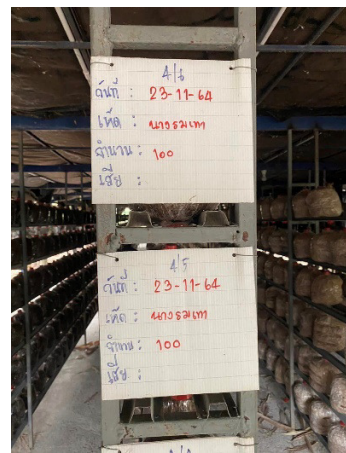 4/6
วันที่ : 23-11-64
เห็ด : นางรมเทา
จำนวน : 100
เสีย :
4/5
วันที่ : 23-11-64
เห็ด : นางรมเทา
จำนวน : 100
เสีย :